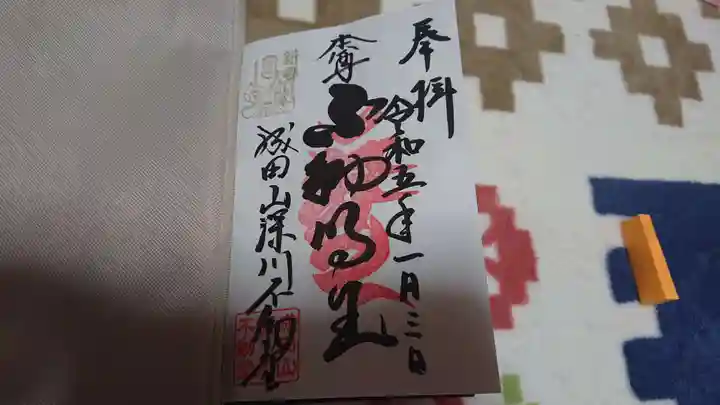 奉拝
令和五年一月三日
本尊
不動明王
成田山深川不動堂